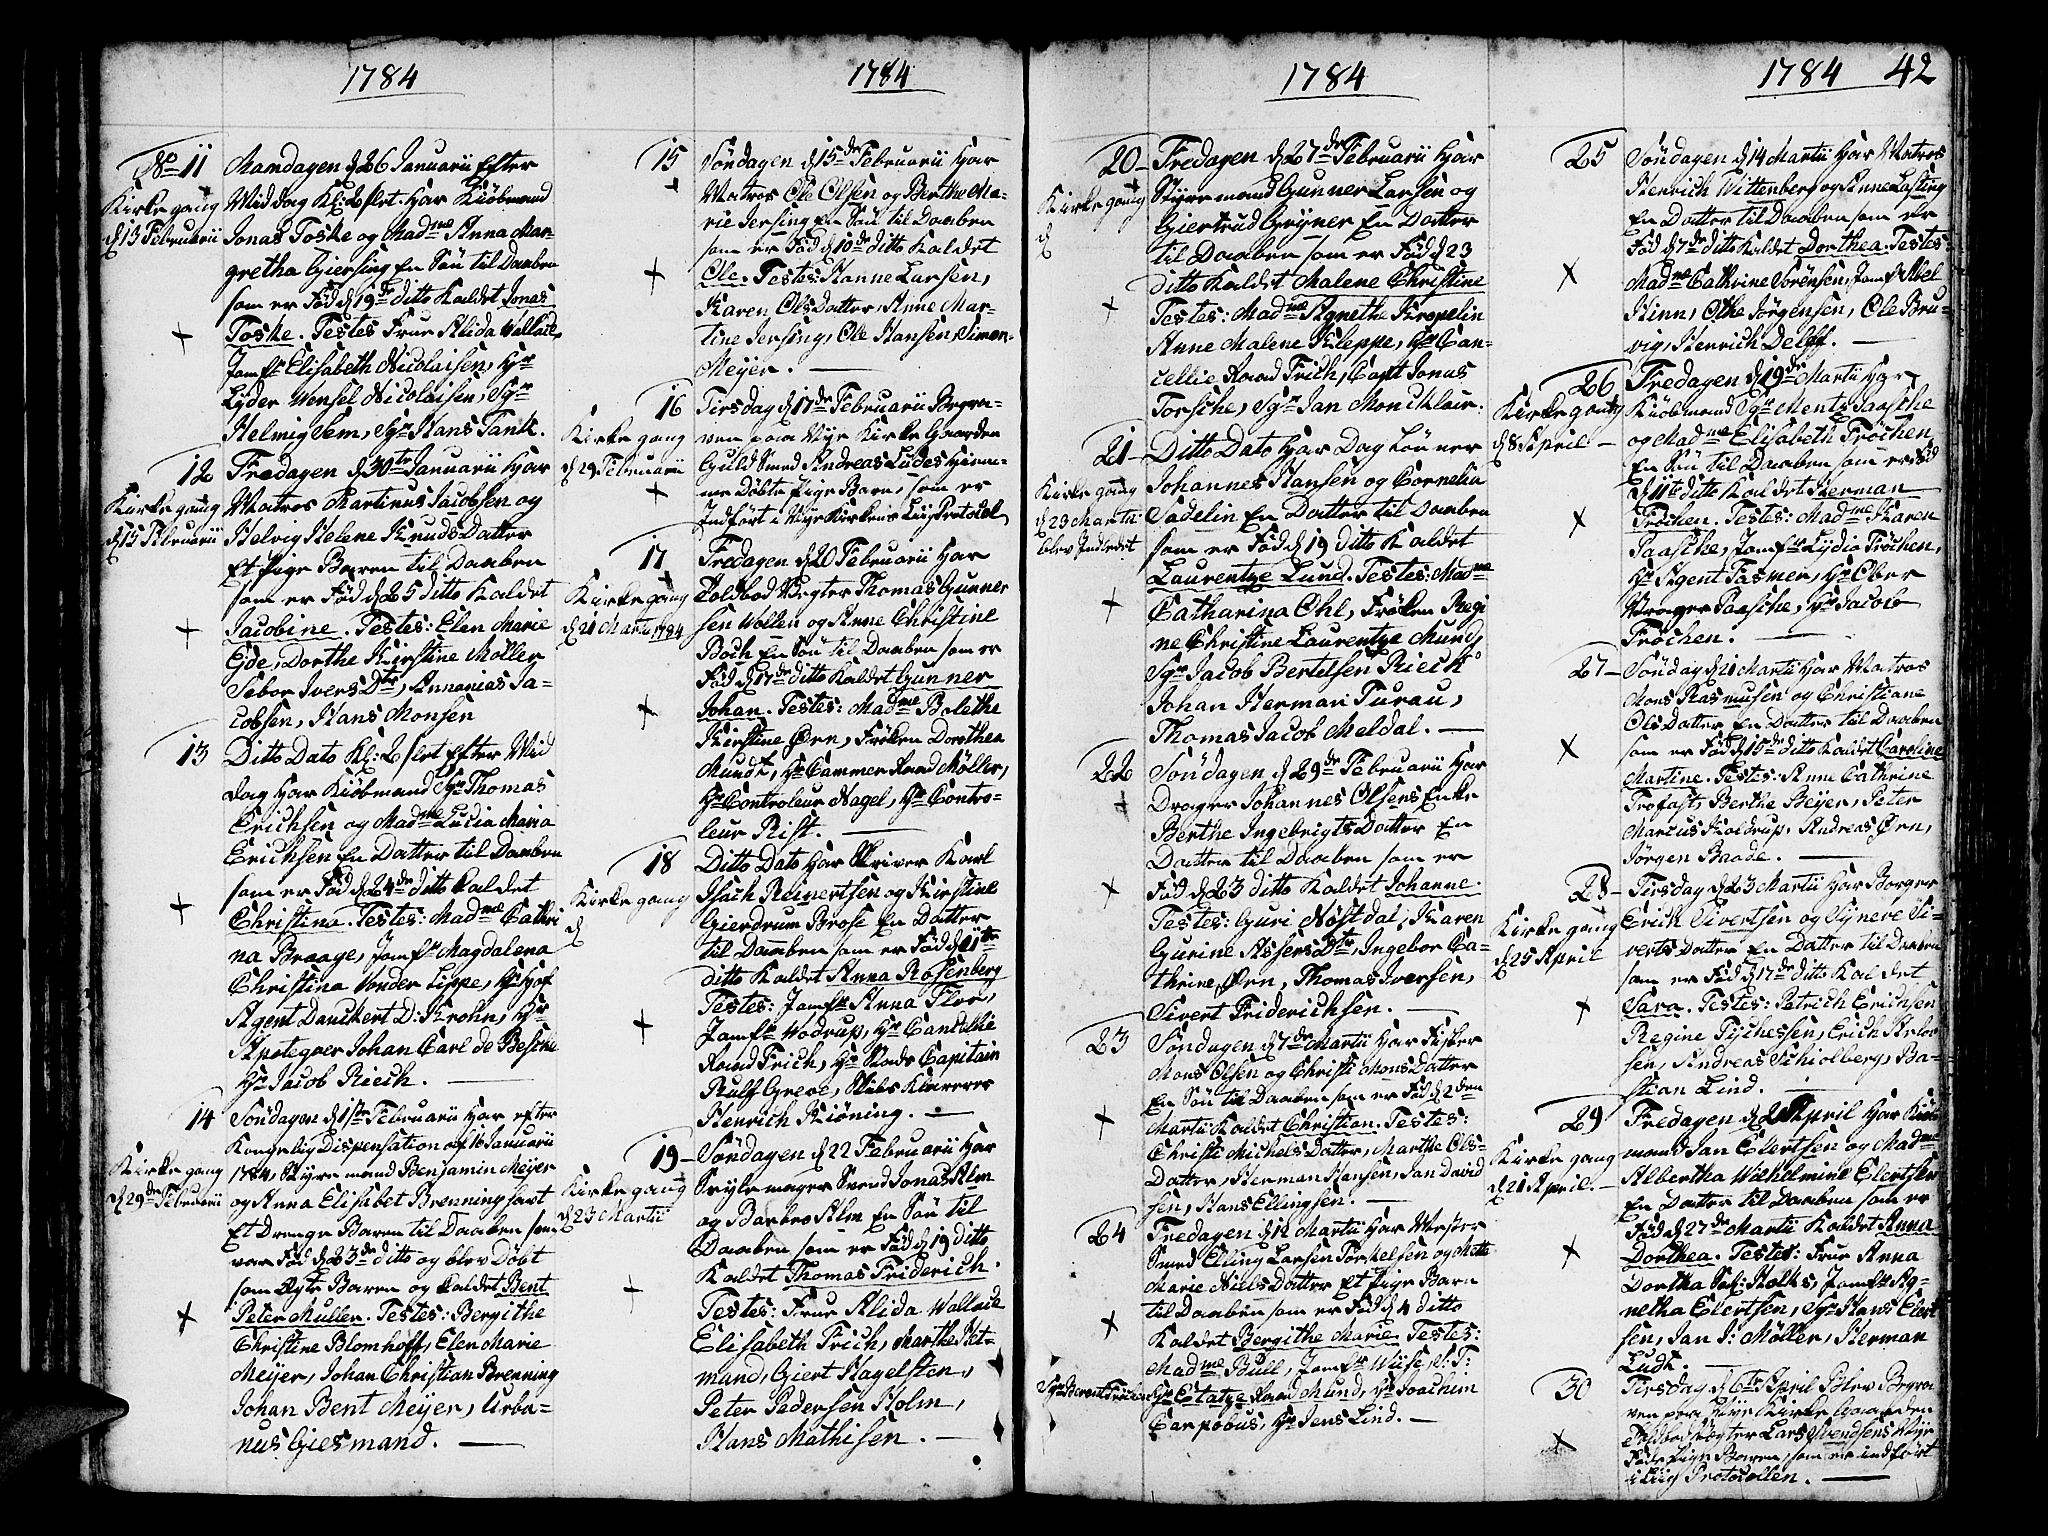 1784
No 11
Kirke gang
d 13 Februarii
Mandagen d 26 Januarii Efter
Middag Kl: 2 slet. har Kiöbmand
Jonas Toske og Madme Anna Mar-
gretha Giersing En Sön til Daaben
som er Föd d 19de ditto Kaldet Jonas
Toske. Testes Frue Alida Wallace,
Jomfr Elisabeth Nicolaisen, Hr
Lyder Wensel Nicolaisen, Sgr
Helmig Sem, Sgr Hans Tank.
12
Kirke gang
d 15 Februarii
Fredagen d 30te Januarii har
Matros Martinus Jacobsen og
Helvig Helene Knuds Datter
Et Pige Baren til Daaben
som er Föd d 25 ditto Kaldet
Jacobine. Testes: Elen Marie
Eide, Dorthe Kirstine Möller
Sebor Ivers Dtr, Annanias Ja-
cobsen, Hans Monsen
13
Ditto Dato Kl: 2 slet Efter Mid
dag har Kiöbmand Sgr Thomas
Erichsen og Madme Lucia Maria
Erichsen En Datter til Daaben
som er Föd d 24de ditto Kaldet
Christina. Testes: Madme Cathri
na Braage, Jomfr Magdalena
Christina Vonder Lippe, Hr Hof
Agent Danckert D: Krohn, Hr
Apotegver Johan Carl de Besche
Hr Jacob Rieck.
14
Kirke gang
d 29de Februarii
Söndagen d 1ste Februarii har efter
Kongelig Dispensation af 16 Januarii
1784, Styremand Benjamin Meyer
og Anna Elisabet Brenning havt
Et Drenge Baren til Daaben som
var Föd d 23de ditto og blev Döbt
som Ægte Baren og Kaldet Bent
Peter Muller. Testes: Bergithe
Christine Blomhoff, Elen Marie
Meyer, Johan Christian Brenning
Johan Bent Meyer, Urba-
nus Giesmand.
1784
15
Söndagen d 15de Februarii har
Matros Ole Olsen og Berthe Ma-
rie Jersing En Sön til Daaben
som er Föd d 10de ditto Kaldet
Ole. Testes: Hanne Larsen,
Karen Ols Datter, Anne Mar-
tine Jersing, Ole Hansen, Simon
Meyer.
16
Kirke gang
d 29 Februarii
Tirsdag d 17de Februarii Begra-
ven paa Nye Kirke Gaarden
Guld Smed Andreas Ludes Hiem-
me Döbte Pige Barn, som er
Indfört i Nye Kirkens Liig Protocol
17
Kirke gang
d 21 Marti 1784
Fredagen d 20 Februarii har
Toldbod Vegter Thomas Gunner
sen Wollen og Anne Christine
Boch En Sön til Daaben som er
Föd d 17de ditto Kaldet Gunner
Johan. Testes: Madme Bolethe
Kirstine Örn, Fröken Dorothea
Mundt, Hr Cammer Raad Möller,
Hr Controleur Nagel, Hr Contro-
leur Rist.
18
Kirke gang
d
Ditto Dato har Skriver Karl
Isach Reinertsen og Kirstine
Gierdrum Brose En Datter
til Daaben som er Föd d 11te
ditto Kaldet Anna Rosenberg
Testes: Jomfr Anna Floer,
Jomfr Wodrup, Hr Cancellie
Raad Frich, Hr Stads Capitain
Rulf Greve, Skibs Klarerer
Henrich Kröning.
19
Kirke gang
d 23 Martii
Söndagen d 22 Februarii har
Seylemager Svend Jonas Alm
og Barbro Alm En Sön til
Daaben som er Föd d 19 ditto
Kaldet Thomas Friderich.
Testes: Frue Alida Wallace
Elisabeth Frich, Marthe Jet-
mand, Giert Hagelsten,
Peter Pedersen Holm,
Hans Mathisen.
1784
20
Kirke gang
d
Fredagen d 27de Februarii har
Styremand Gunner Larsen og
Giertrud Grÿner En Datter
til Daaben som er Föd d 23
ditto Kaldet Malene Christine
Testes: Madme Agnethe Kropelin
Anne Malene Kleppe, Hr Can-
cellie Raad Frich, Capt Jonas
Torsche, Sgr Jan Moncklair.
21
Kirke gang
d 23 Martii
blev Indledet
Ditto Dato har Dag Lönner
Johannes Hansen og Cornelia
Sadelin En Datter til Daaben
som er Föd d 19 ditto Kaldet
Laurentze Lund. Testes: Madme
Catharina Ohl, Fröken Regi
ne Christine Laurentze Mund,
Sgr Jacob Bertelsen Rieck
Johan Herman Turau,
Thomas Jacob Meldal.
22
Söndagen d 29de Februarii har
Drager Johannes Olsens Enke
Berthe Ingebrigts Datter En
Datter til Daaben som er
Föd d 23 ditto Kaldet Johanne.
Testes: Guri Nöstdal, Karen
Gurine Assers Dtr, Ingebor Ca-
thrine Örn, Thomas Iversen,
Sivert Friderichsen.
23
Söndagen d 7de Martii har Fisker
Mons Olsen og Christi Mons Datter
En Sön til Daaben som er Föd d 2den
Martii Kaldet Christian. Testes:
Christi Michels Datter, Marthe Ols-
Datter, Herman Hansen, Jan David
sen, Hans Ellingsen.
24
Fredagen d 12 Martii har Mester
Smed Elling Larsen Torkelsen og Mette
Marie Niels Datter Et Pige Barn
til Daaben som er Föd d 4 ditto
Kaldet Bergithe Marie. Testes:
Madme Bull, Jomfr Wiise, S: T:
Hr Etatze Raad Mund, Hr Joachim
Carpobus, Hr Jens Lind.
1784 42
25
Söndagen d 14 Martii har Matros
Henrich Wittenberg og Anne Lasting
En Datter til Daaben som er
Föd d 7de ditto Kaldet Dorthea. Testes:
Madme Cathrine Sörensen, Jomfr Abel
Kinn, Othe Jörgensen, Ole Bru-
vig, Henrich Delff.
26
Kirke gang
d 8 April
Fredagen d 19de Martii har
Kiöbmand Sgr Mentz Paasche
og Madme Elisabeth Fröchen
En Sön til Daaben som er Föd
d 11te ditto Kaldet Herman
Fröchen. Testes: Madme Karen
Paasche, Jomfr Lydia Fröchen,
Hr Agent Fasmer, Hr Ober
Vrager Paasche, Hr Jacob
Fröchen.
27
Söndag d 21 Martii har Matros
Mons Rasmusen og Christiane
Ols Datter En Datter til Daaben
som er Föd d 15de ditto Kaldet Caroline
Martine. Testes: Anne Cathrine
Trofast, Berthe Beyer, Peter
Marcus Koldrup, Andreas Örn,
Jörgen Baade.
28
Kirke gang
d 25 April
Tirsdag d 23 Martii har Borger
Erich Sivertsen og Synneve Si-
verts Datter En Datter til Daaben
som er Föd d 17de ditto Kaldet
Sara. Testes: Patrich Erichsen
Regine Tychessen, Erich
sen, Andreas Schiolberg, Ba-
stian Lind.
29
Kirke gang
d 21 April.
Fredagen d 2 April har Kiöb
mand Jan Elertsen og Madme
Albertha Wilhelmine Elertsen
En Datter til Daaben som er
Föd d 27de Martii Kaldet Anna
Dorthea. Testes: Frue Anna
Dorthea Sal: Holks, Jomfr Ag-
netha Elertsen, Sgr Hans Elert
sen, Jan J: Möller, Herman
Ludt.
30
Tirsdag d 6te April Blev Begra
ven paa Nye Kirke Gaarden
Toldbod Vegter Lars Svendsens Nye
Föde Pige Baren, som er indfört
i Liig Protocollen.